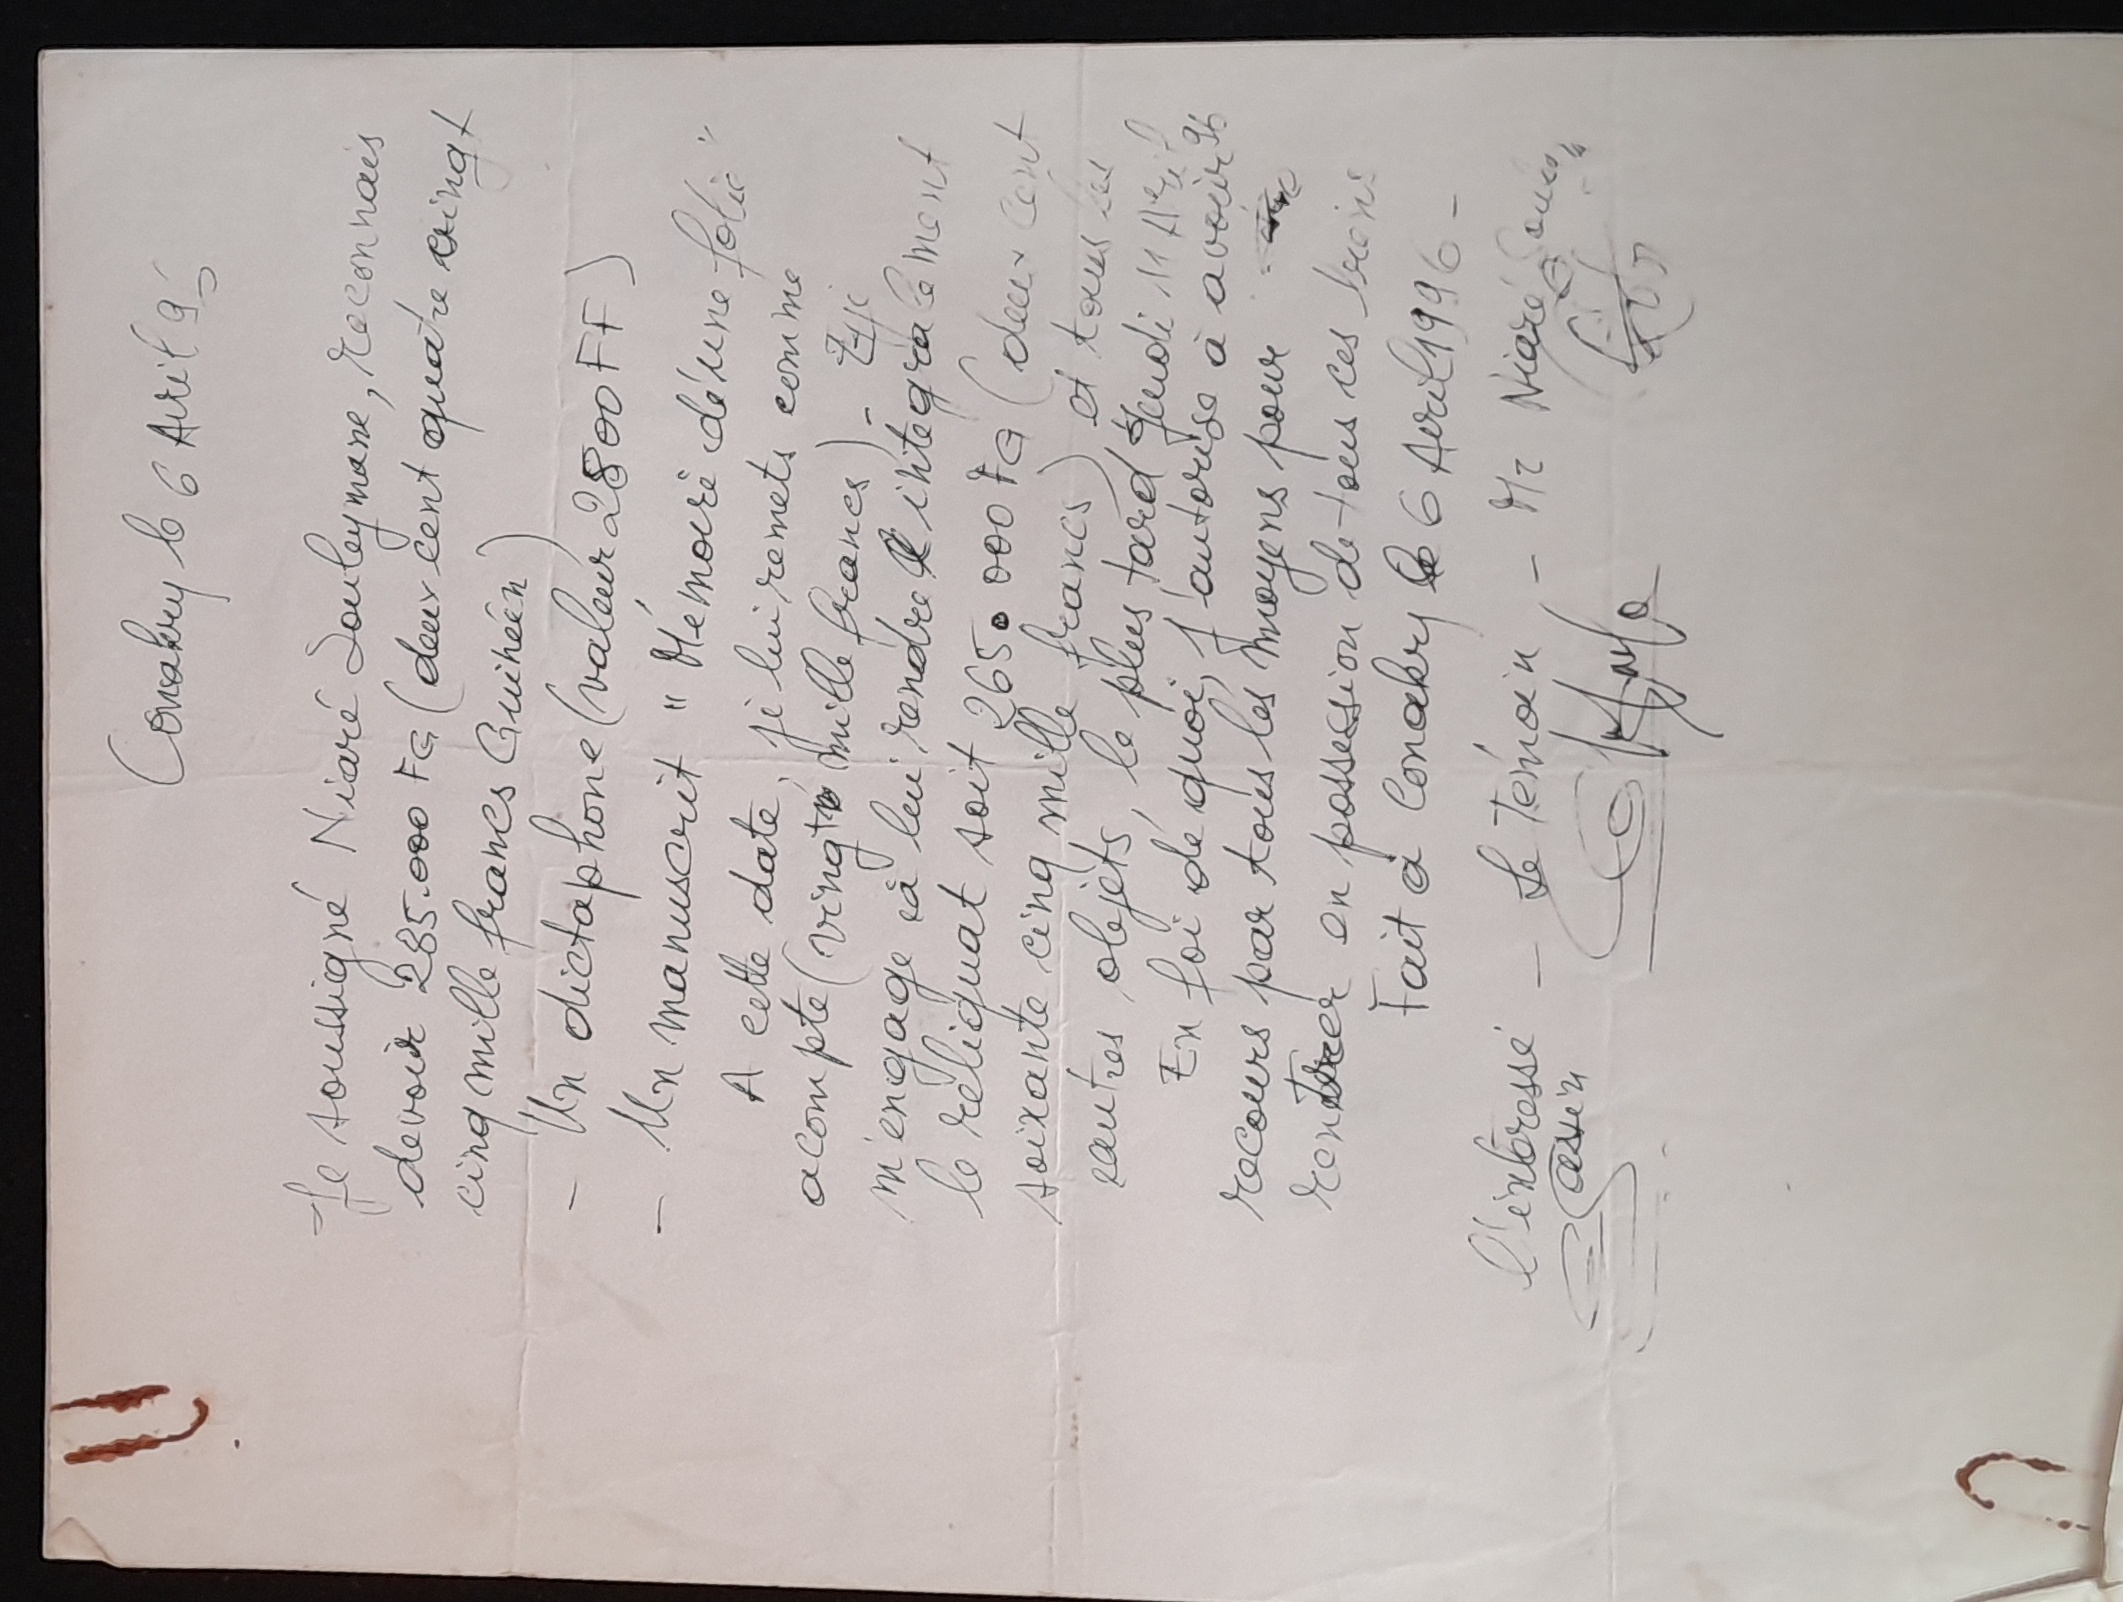 Conakry le 6 Avril 9
- Je soussigné Niaré Souleymane, reconnais
devoir 285.000 FG (deux cent quatre vingt
cinq mille francs Guinéen)
- Un dictaphone (valeur 2800 FF)
- Un manuscrit " Mémoire d'une folie "
A cette date, je lui remets comme
acompte (vingt mille francs) - Et je
m'engage à lui rendre intégralement
le reliquat soit 265.000 FG (deux cent
soixante cinq mille francs) et tous les
autres objets, le plus tard Jeudi 11 Avril 96
En foi de quoi, j'autorise à avoir
recours par tous les moyens pour
rentrer en possession de tous ces biens
Fait à Conakry le 6 Avril 1996 -
l'intéressé - Le Témoin - Mr Niaré